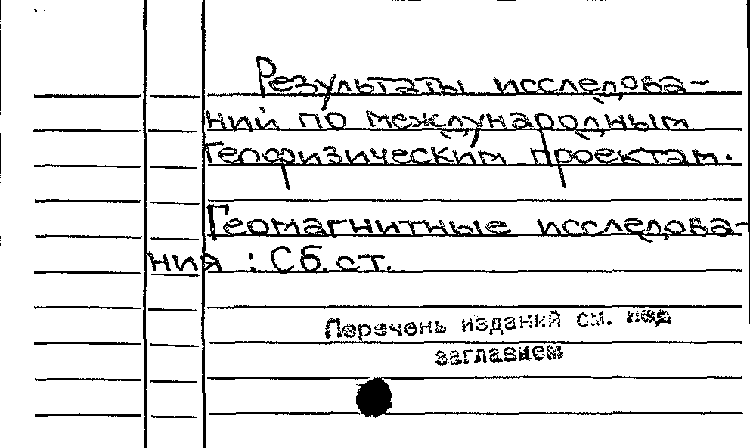 Результаты исследова-
ний по международным
геофизическим проектам.
Геомагнитные исследова-
ния : Сб.ст.
Перечень изданий см. под
заглавием